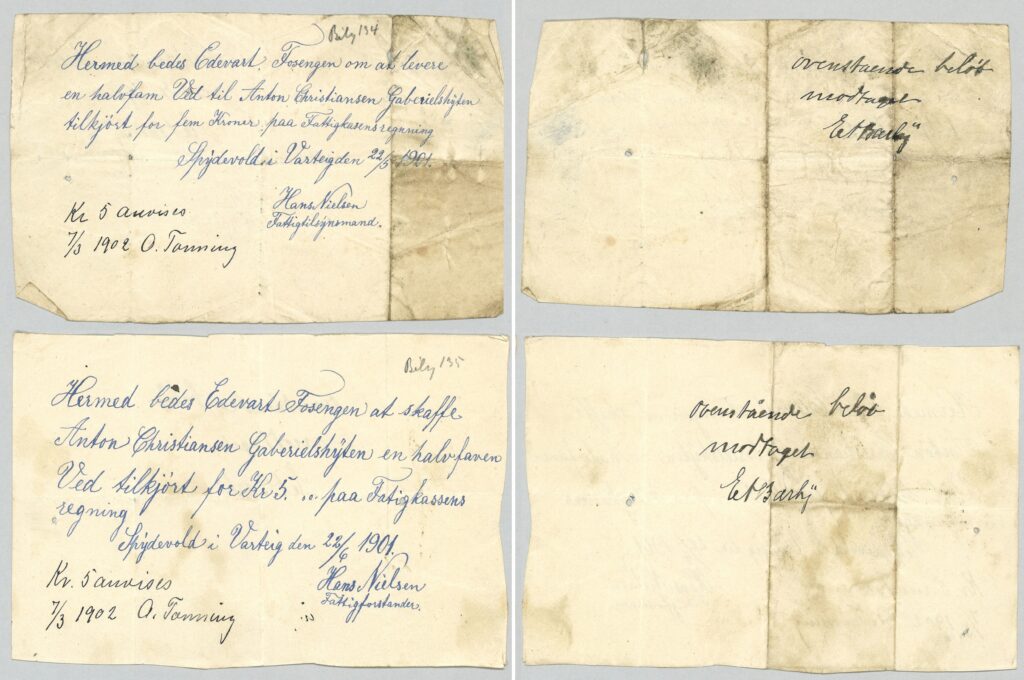 Bilg 134
Hermed bedes Edevart Fosengen om at levere
en halvfam Ved til Anton Christiansen Gaberielshÿten
tilkjört for fem Kroner paa Fattigkasens regning
Spÿdevold i Varteig den 22/5 1901.
Hans Nielsen
Fattigtilsÿnsmand.
Kr 5 anvises
7/3 1902 O. Tanning
ovenstaende beløb
modtaget
Bilg 135
Hermed bedes Edevart Fosengen at skaffe
Anton Christiansen Gaberielshÿten en halvfaven
Ved tilkjört for Kr 5 ,, paa Fatigkassens
regning
Spÿdevold i Varteig den 22/6 1901.
Hans Nielsen
Fattigforstander.
Kr. 5 anvises
7/3 1902 O. Tanning
ovenstående beløb
modtaget